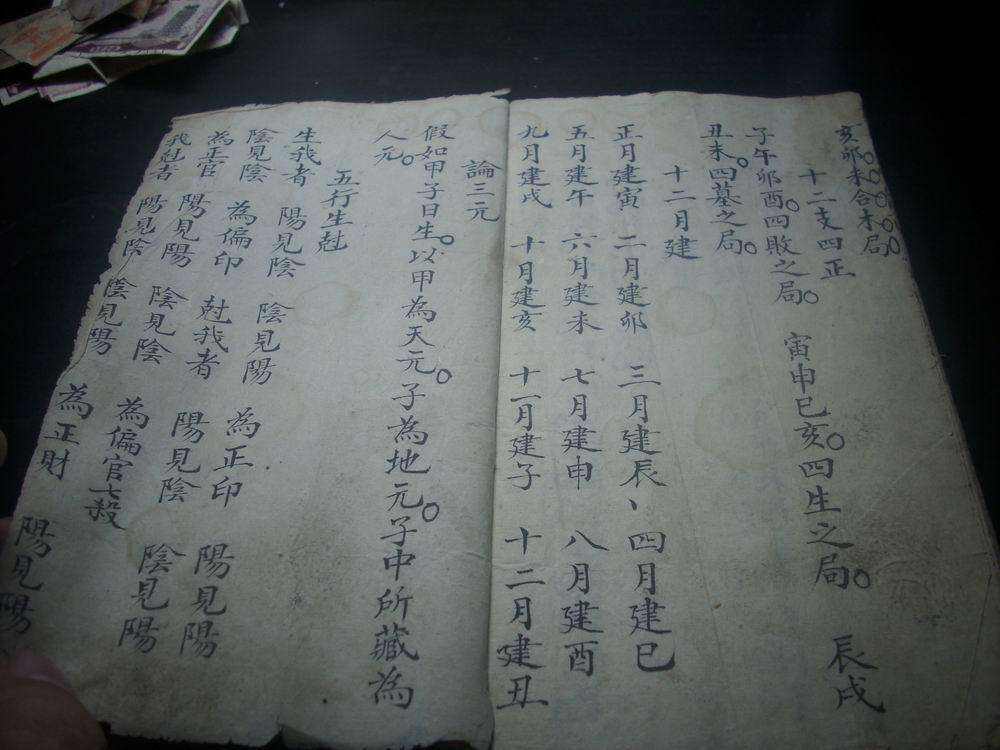 亥卯未合木局
十二支四正
子午卯酉四敗之局 寅申巳亥四生之局 辰戌
丑未四墓之局
十二月建
正月建寅 二月建卯 三月建辰、四月建巳
五月建午 六月建未 七月建申 八月建酉
九月建戌 十月建亥 十一月建子 十二月建丑
論三元
假如甲子日生以甲為天元子為地元子中所藏為
人元
五行生尅
生我者 陽見陰 陰見陽 為正印 陽見陽
陰見陰 為偏印 尅我者 陽見陰 陰見陽
為正官 陽見陽 陰見陰 為偏官七殺
我尅者 陽見陰 陰見陽 為正財 陽見陽